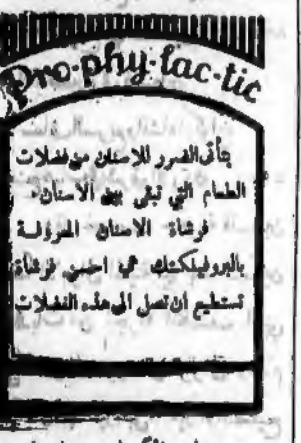 Pro-phy-lac-tic
يتأتى الضرر للاسنان من فضلات
الطعام التي تبقى بين الاسنان.
فرشاة الاسنان المعروفة
بالبروفيلكتك هي احسن فرشاة
تستطيع ان تصل الى هذه الفضلات